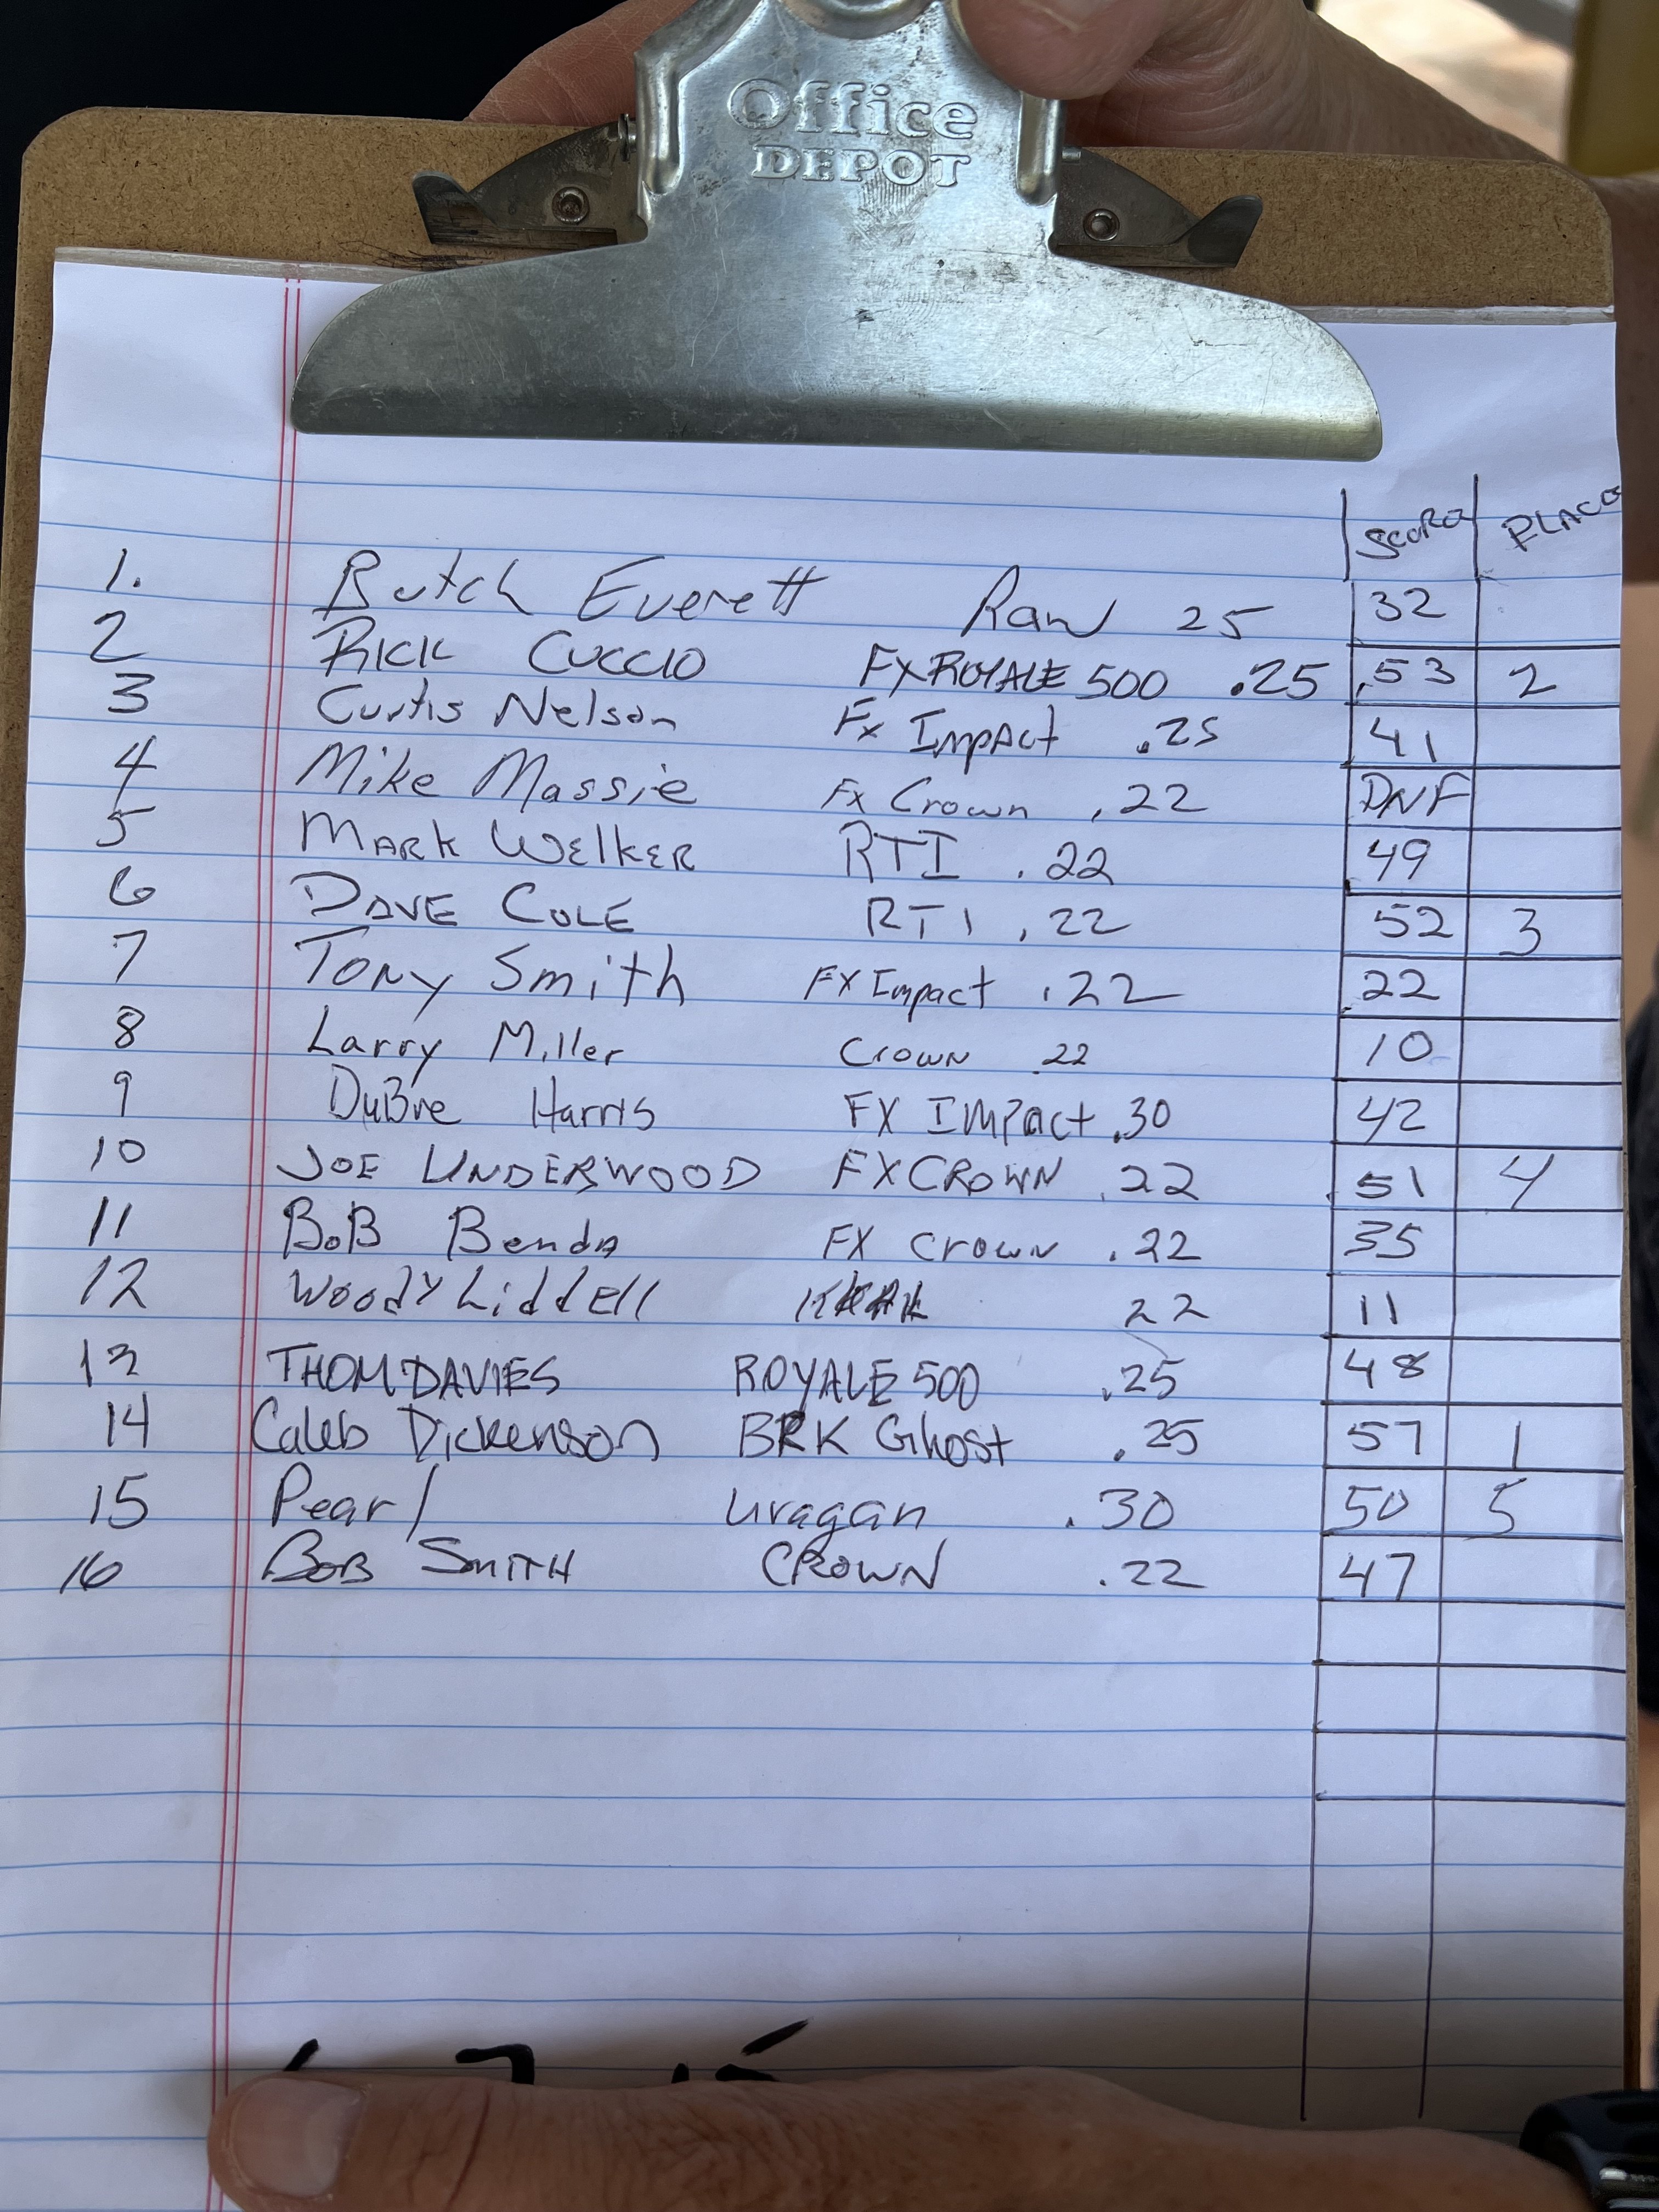 Office
DEPOT
SCORE PLACE
1. Butch Everett Raw 25 32
2 RICK CUCCIO FX ROYALE 500 .25 53 2
3 Curtis Nelson Fx Impact .25 41
4 Mike Massie Fx Crown .22 DNF
5 MARK WELKER RTI .22 49
6 DAVE COLE RTI .22 52 3
7 TONY Smith FX Impact .22 22
8 Larry Miller Crown 22 10
9 Harris FX IMPact .30 42
10 JOE UNDERWOOD FX CROWN .22 51 4
11 BoB Benda FX Crown .22 35
12 Woody Liddell 22 11
13 THOM DAVIES ROYALE 500 .25 48
14 Caleb Dickenson BRK Ghost .25 57 1
15 Pearl uragan .30 50 5
16 BOB SMITH CROWN .22 47